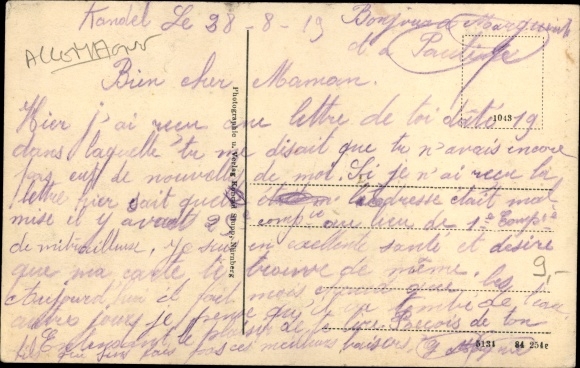 Kandel Le 28-8-19
Bonjour à Marguerite
et à Pauline
ALLEMAGNE
Bien cher Maman.
Hier j'ai recu une lettre de toi daté 19
dans laquelle tu me disait que tu n'avais encore
pas eut de nouvelle de moi. Si je n'ai recu ta
lettre hier sait que l'adresse était mal
mise il y avait 2e compie au lieu de 1e Compie
de mitrailleuse, je suis en excellente santé et désire
que ma carte te trouve de même.
Aujourd'hui il fait moins que les
autres jours je pense qu'il tombé de l'eau
En attendant le plaisir de Recois de ton
fils qui meilleurs baisers
Photographie u. Verlag Nürnberg
1043
9,-
5131 84 254c